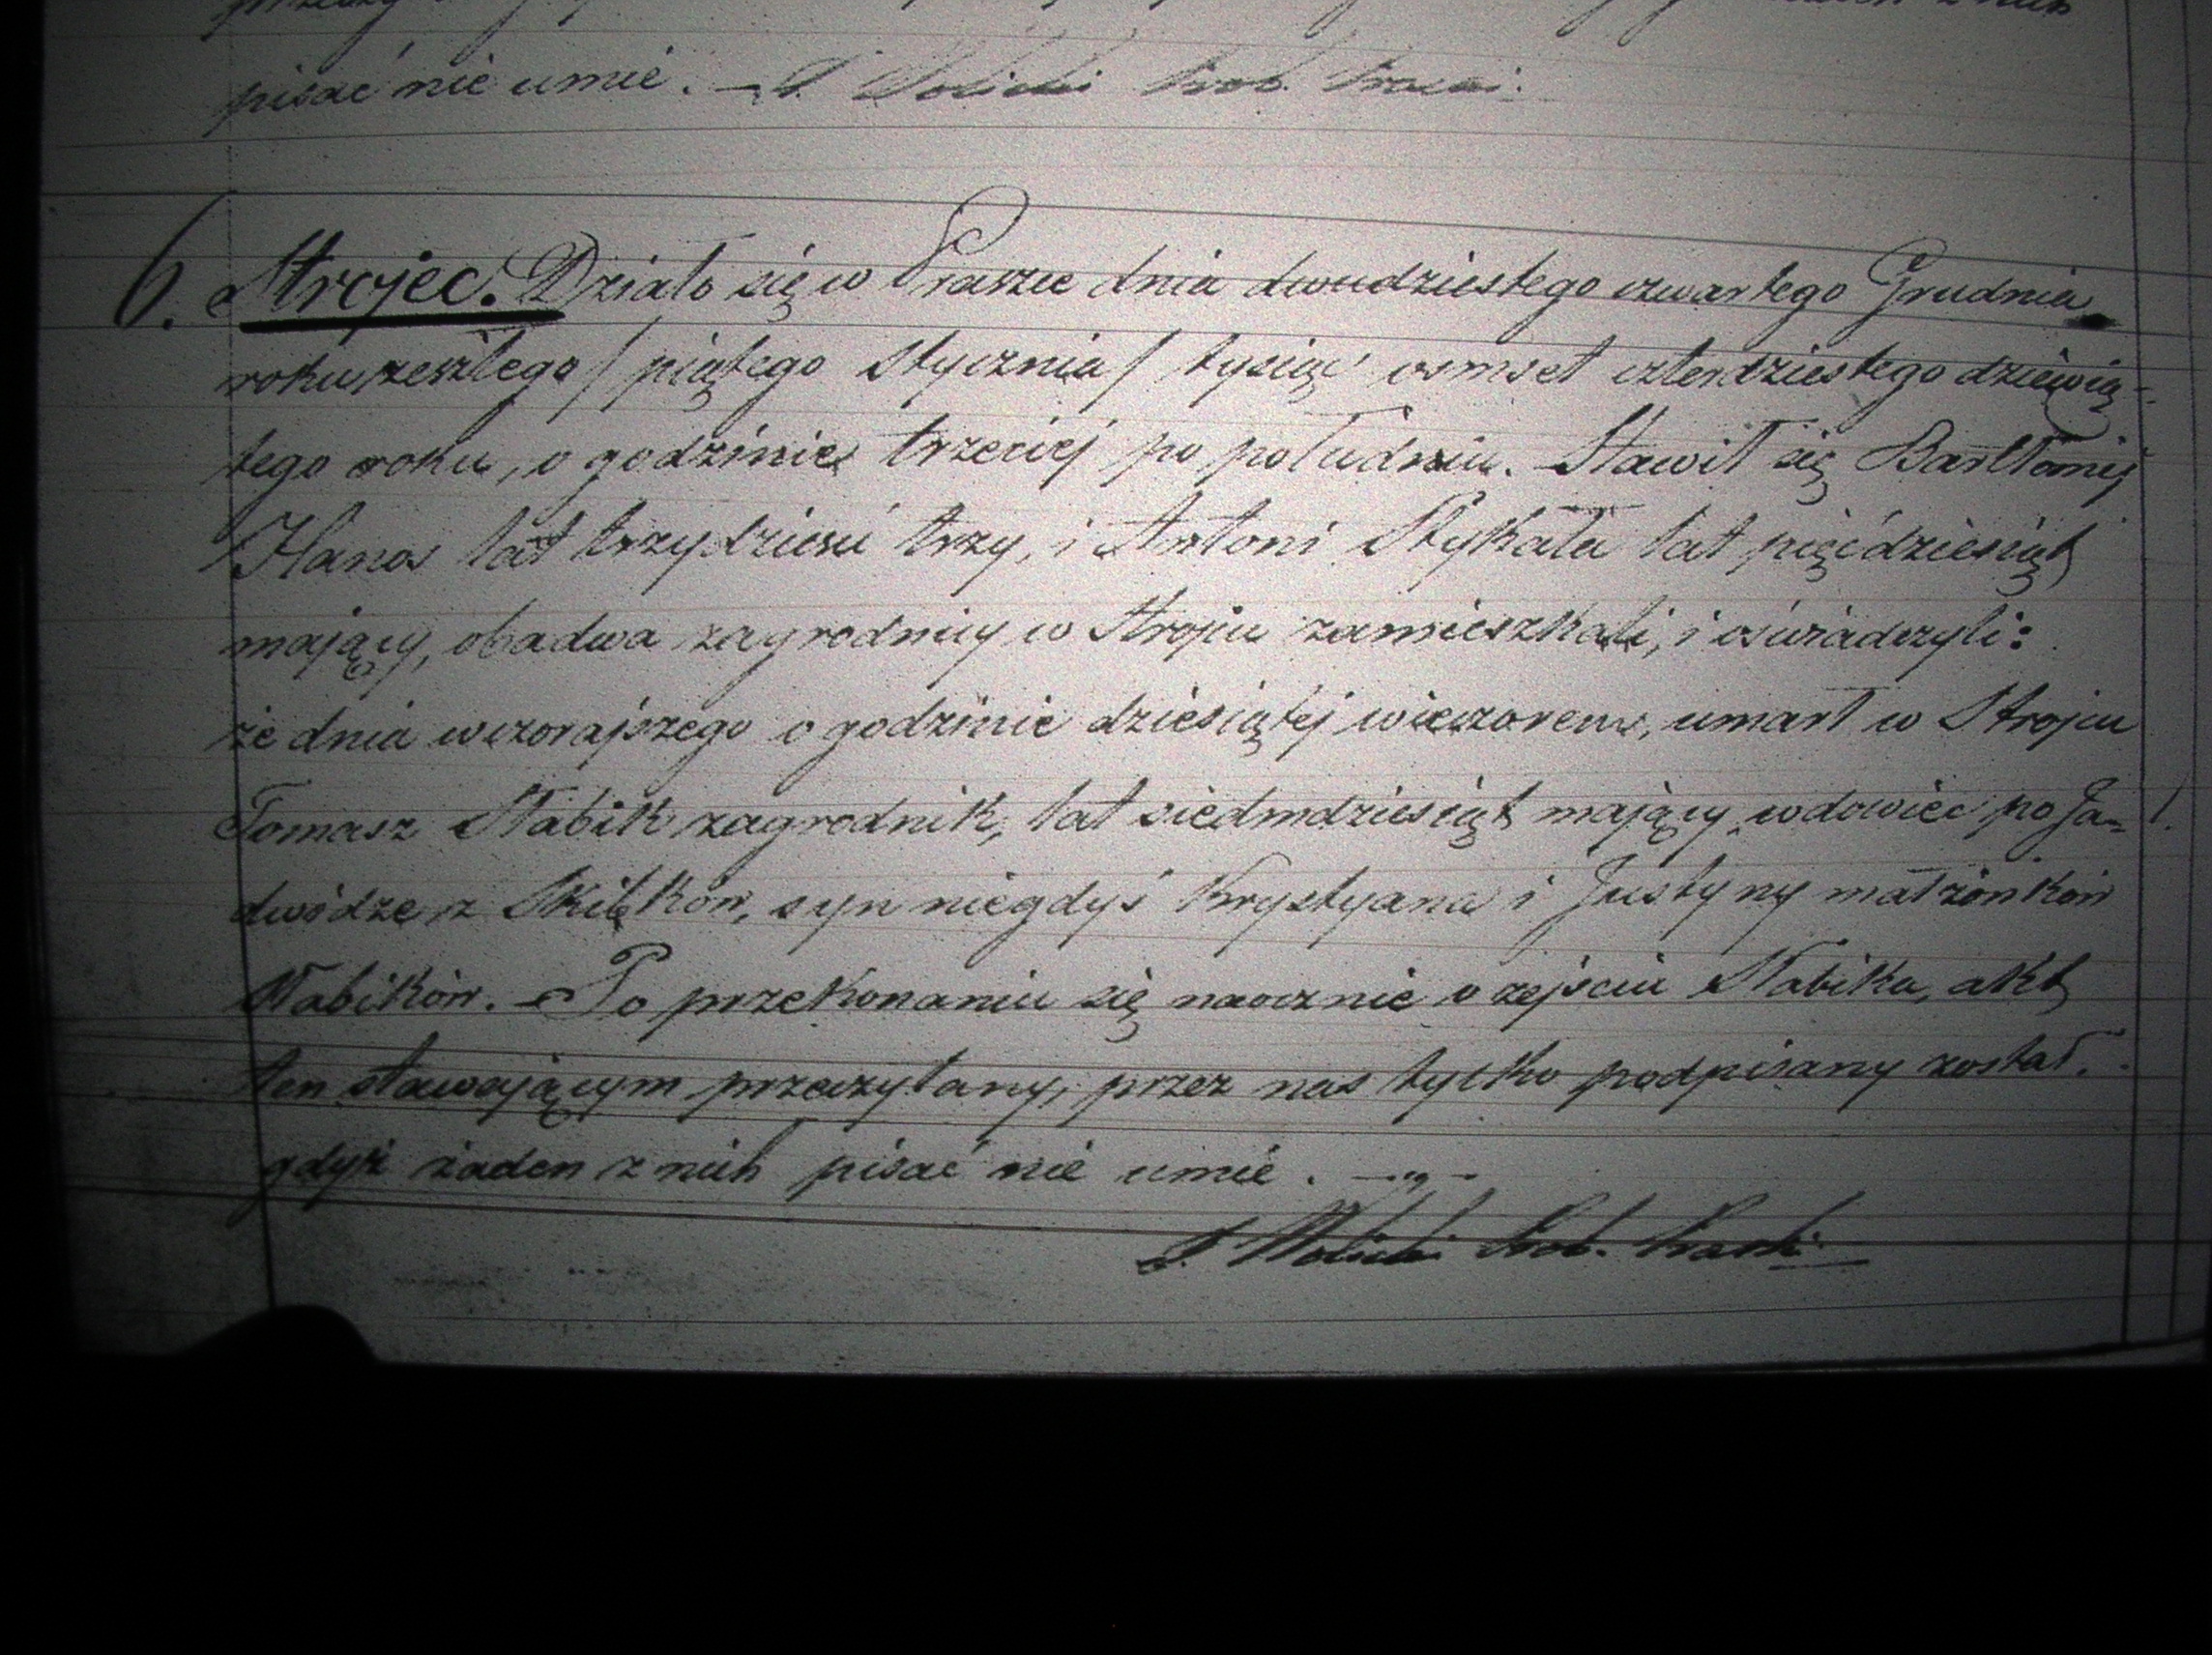 pisać nie umie. —
6. Strojec. Działo się w Praszce dnia dwudziestego czwartego Grudnia
roku zeszłego / piątego Stycznia / tysiąc osmset czterdziestego dziewią-
tego roku, o godzinie trzeciej po południu. Stawił się Bartłomiej
Hanas lat trzydzieści trzy, i Antoni Stykała lat pięćdziesiąt
mający, obadwa zagrodnicy w Strojcu zamieszkali, i oświadczyli:
że dnia wczorajszego o godzinie dziesiątej wieczorem, umarł w Strojcu
Tomasz Słabik zagrodnik, lat siedmdziesiąt mający, wdowiec po Ja-
dwidze z , syn niegdyś Krystyana i Justyny małżonków
Słabików. — Po przekonaniu się naocznie o zejściu Słabika, akt
ten stawającym przeczytany, przez nas tylko podpisany został.
gdyż żaden z nich pisać nie umie. —„—